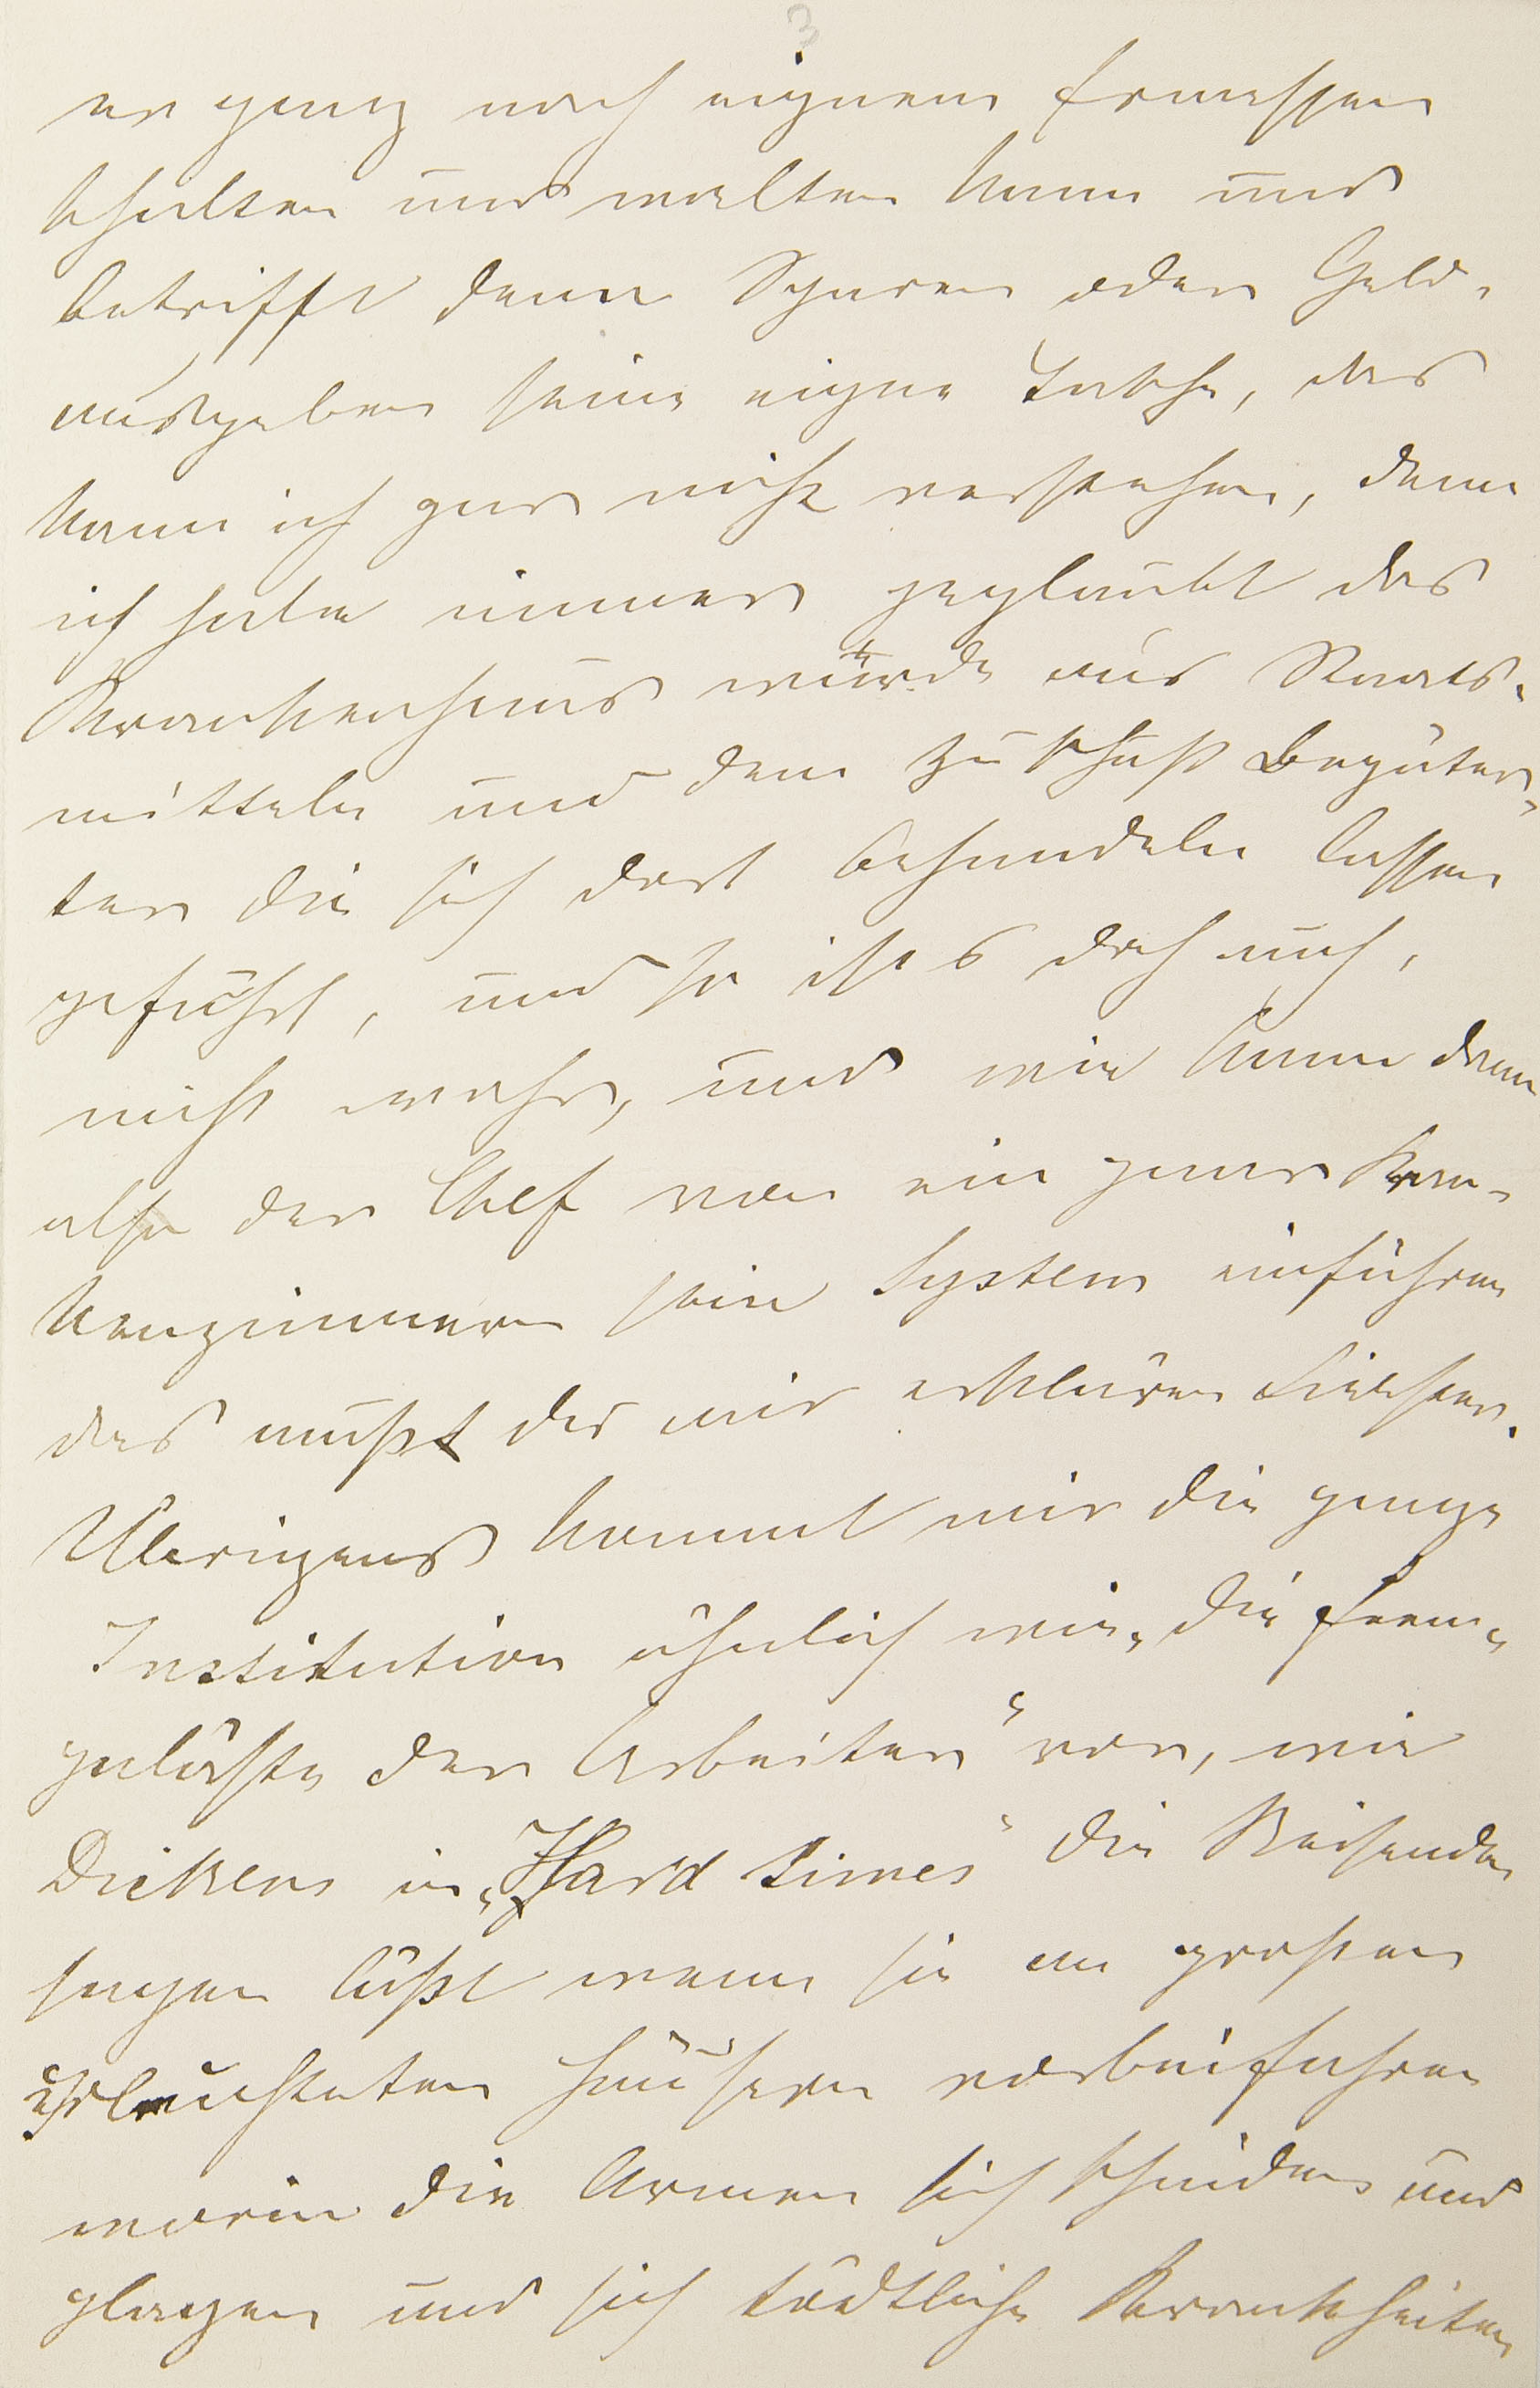 3
er ganz nach eignem Ermessen
schalten und walten kann und
betrifft denn Sparen oder Geld-
ausgeben seine eigne Tasche, das
kann ich gar nicht verstehen, denn
ich habe immer geglaubt das
Krankenhaus würde aus Staats-
mitteln und dem Zuschuß Begüter-
ter die sich dort behandeln lassen
geführt, und so ist's doch auch,
nicht wahr, und wie kann denn
also der Chef von ein paar Kran-
kenzimmern sein System einführen
das mußt du mir erklären Liebster.
Übrigens kommt mir die ganze
Institution ähnlich wie „die Feen-
paläste der Arbeiter" vor, wie
Dickens in „Hard times" die Reisenden
sagen läßt wenn sie an großen
erleuchteten Häusern vorbeifahren
worin die Armen sich schinden und
plagen und sich tödtliche Krankheiten